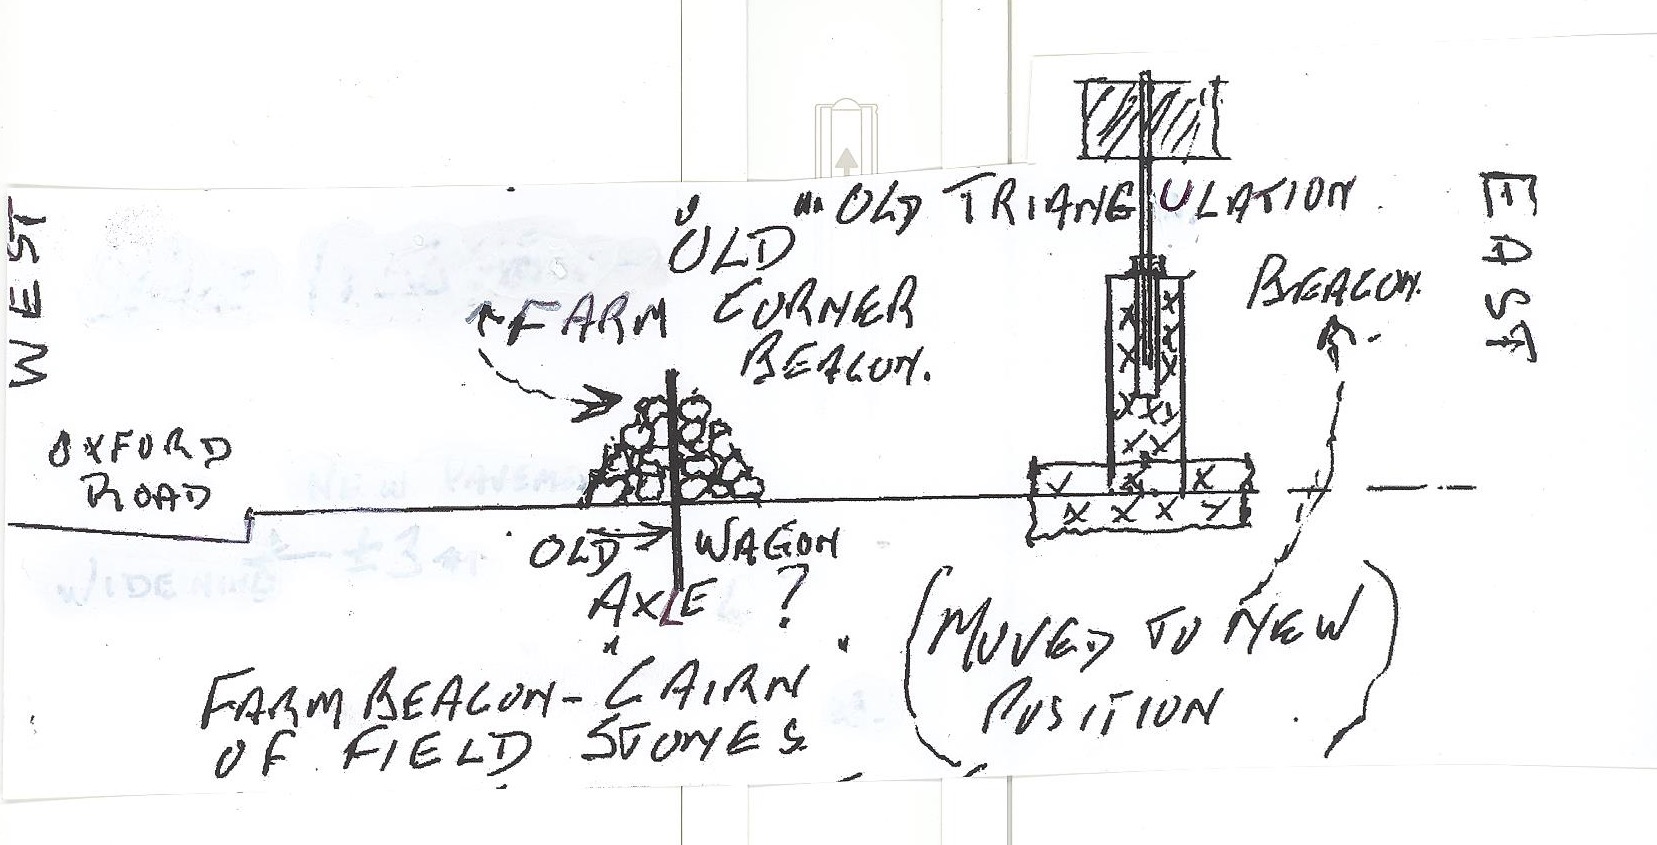 WEST
EAST
"OLD TRIANGULATION
BEACON.
OLD
FARM CORNER
BEACON.
OXFORD
ROAD
NEW PAVEMEN
WIDENING
±3
OLD WAGON
AXLE ?
FARM BEACON - "CAIRN"
OF FIELD STONES
(MOVED TO NEW
POSITION)